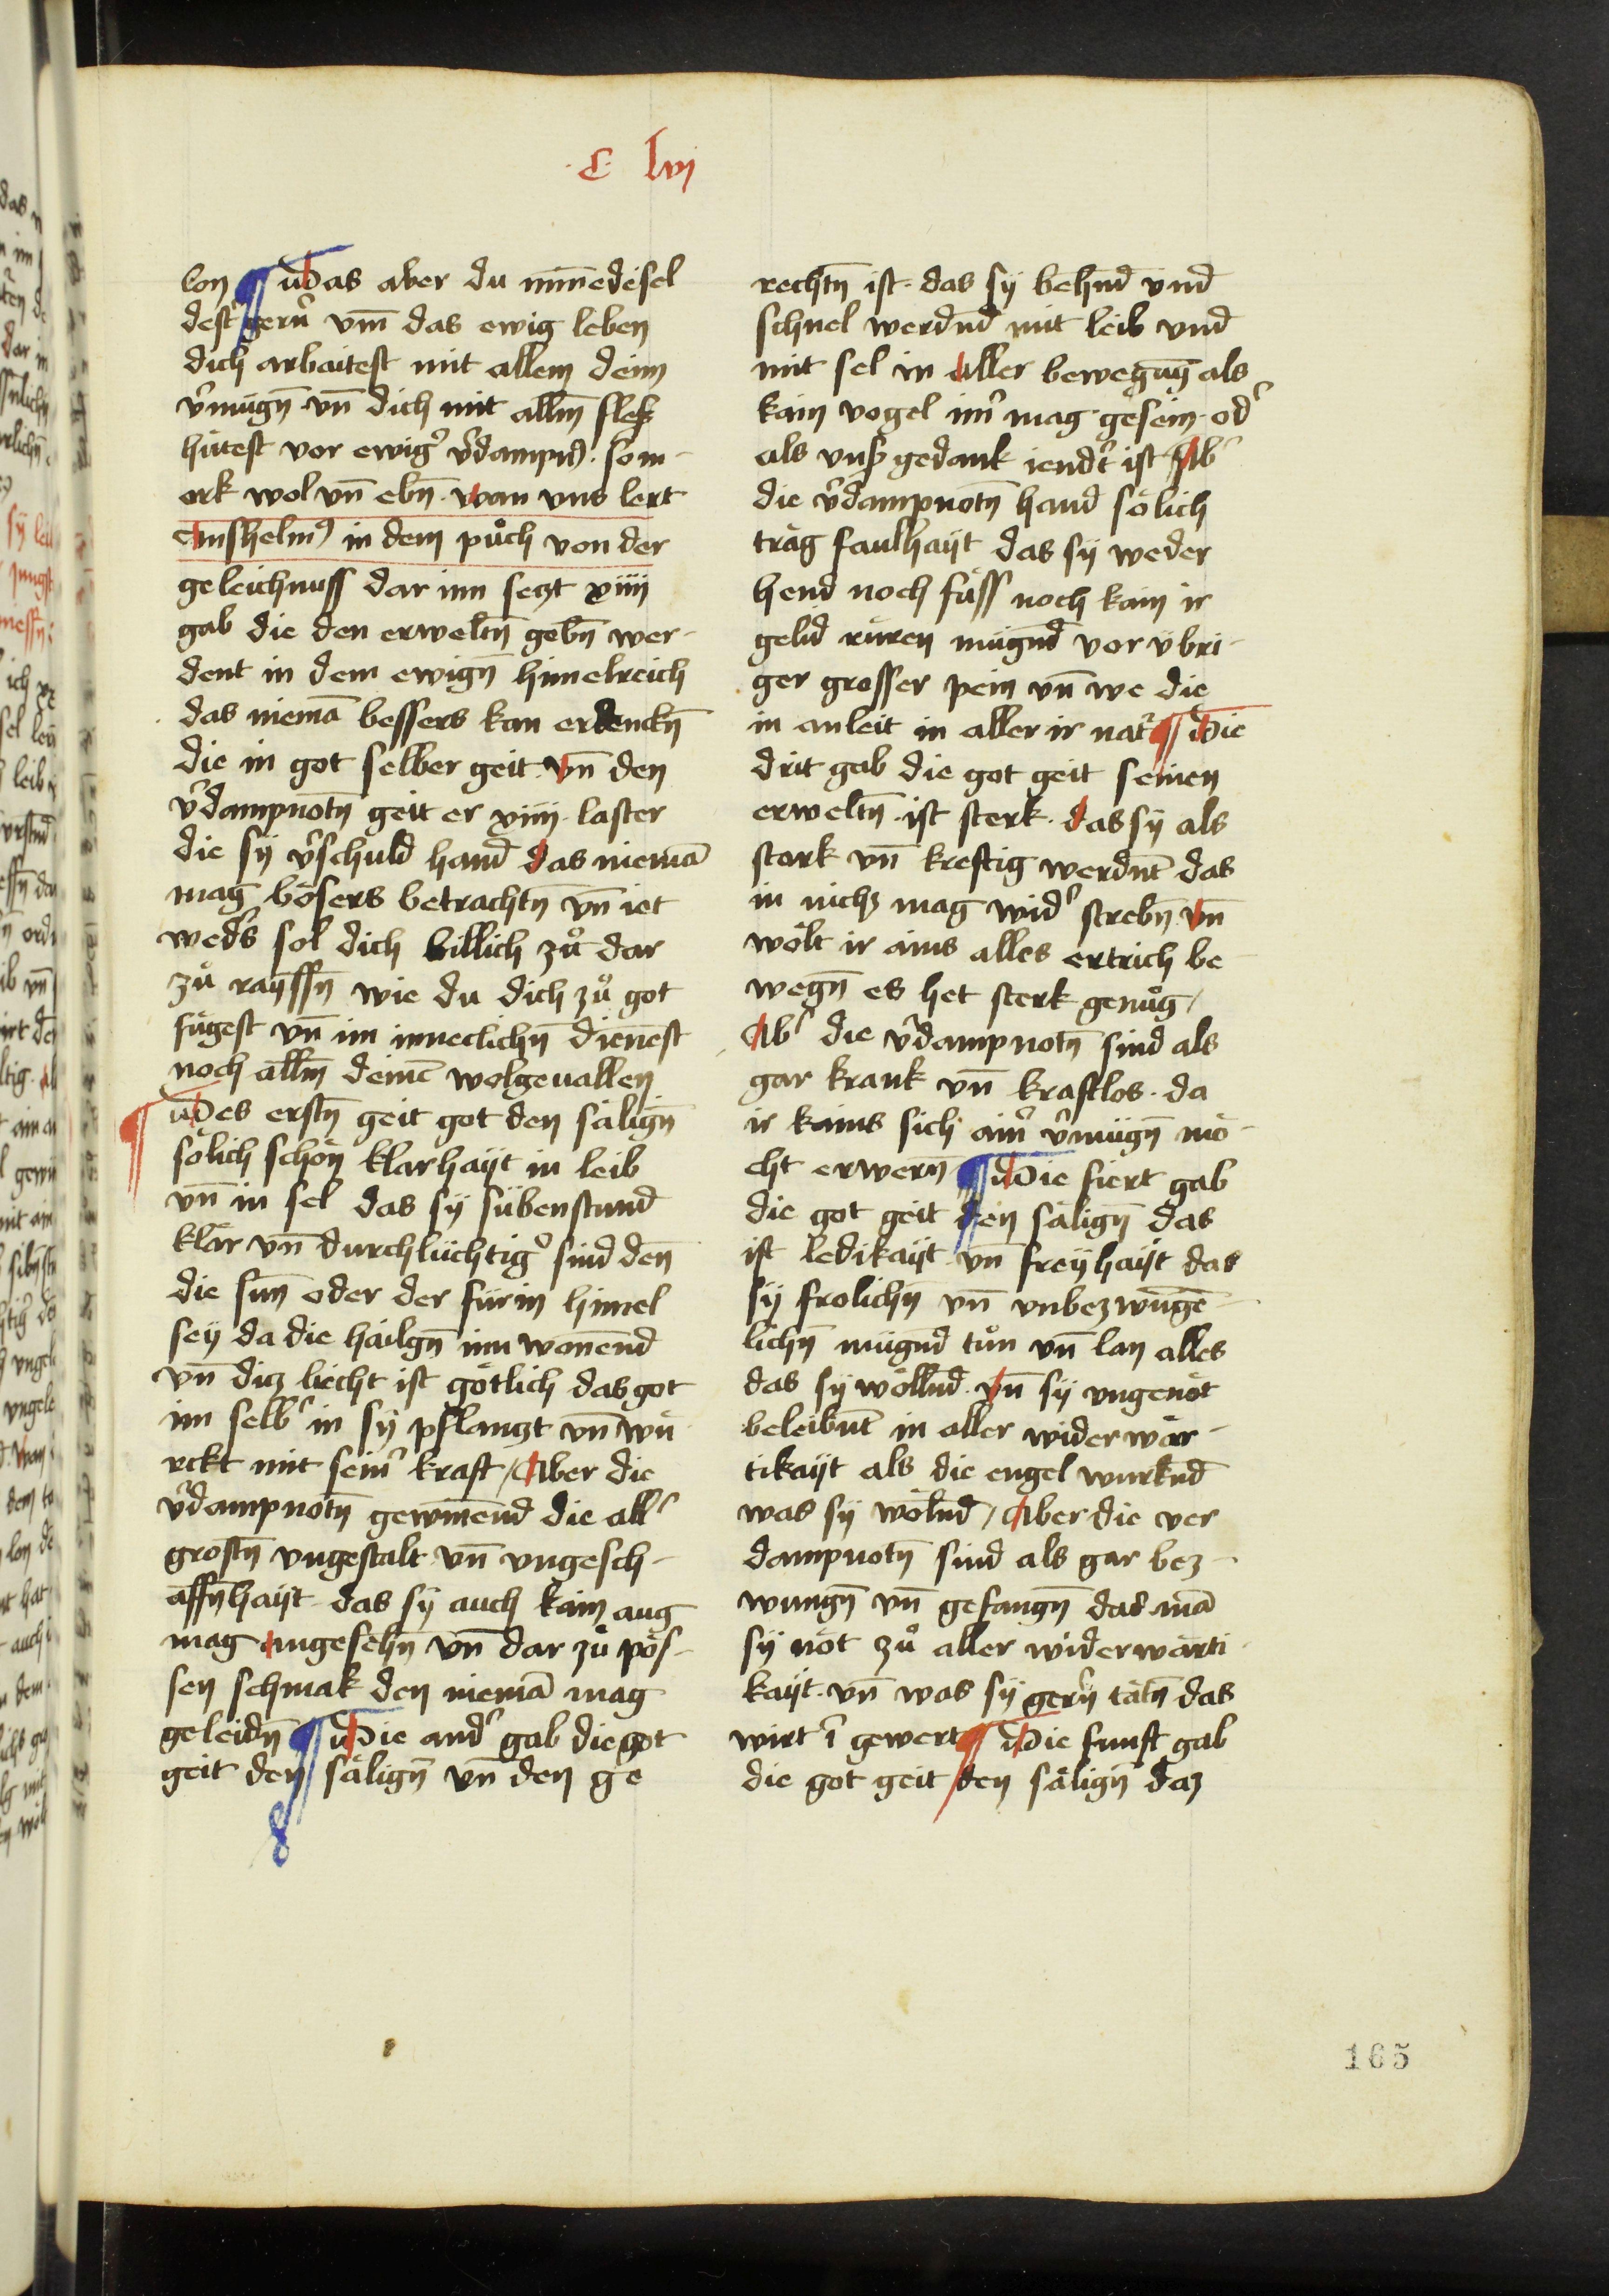 C lvj
lon ¶ Das aber du minnedi sel
dest gern̄ vm̄ das ewig leben
dich arbaitest mit allem deim
v̄mügn̄ vn̄ dich mit allm̄ fleiß
hütest vor ewigͤ v̄dampnꝰ. so m-
erk wol vn̄ ebn̄. wan vns lert
Anshelmꝰ in dem půch von der
geleichnuss dar inn seczt xiiij
gab die den erweltn̄ gebn̄ wer-
dent in dem ewign̄ himelreich
das niemā bessers kan erdenckn̄
die in got selber geit. vn̄ den
v̄dampnotn̄ geit er xiiij. laster
die sÿ v̄schuld hand das niemā
mag bösers betrachtn̄ vn̄ iet
weds̄ sol dich billich zů dar
zů raÿssn̄ wie du dich zů got
fügest vn̄ im inneclichn̄ dienēst
noch allm̄ deinē wolgeuallen
¶ Des erstn̄ geit got den sälign̄
sölich schön klarhaÿt in leib
vn̄ in sel das sÿ sübenstund
klär vn̄ durchlüchtigͤ sind den̄
die sun̄ oder der für in himel
seÿ da die häilgn̄ inn wonend
vn̄ dicz liecht ist götlich das got
im selbͤ in sÿ pflanczt vn̄ wü
rckt mit seinͤ kraft / Aber die
v̄dampnotn̄ gewinnend die allͤ
grostn̄ vngestalt vn̄ vngesch-
affn̄haÿt das sÿ auch kain aug
mag angesehn̄ vn̄ dar zů pös-
sen schmak den niemā mag
geleidn̄ ¶ Die andͤ gab die got
geit den sälign̄ vn̄ den ge
rechtn̄ ist. das sÿ behend vnd
schnel werdnd mit leib vnd
mit sel in aller bewegūg als
kain vogel imͤ mag gesein. odͤ
als vnsͤ gedank iendt̄ ist Abͤ
die v̄dampnotn̄ hand sölich
träg faulhaÿt das sÿ weder
hend noch füss noch kain ir
gelid rüren mügnd vor übri-
ger grosser pein vn̄ we die
in anleit in aller ir natͬ ¶ Die
drit gab die got geit seinen
erweltn̄. ist sterk. das sÿ als
stark vn̄ kreftig werdn̄t das
in nichcz mag widͤ strebn̄ vn̄
wölt ir ains alles ertrich be
wegn̄ es het sterk genůg /
Abͤ die v̄dampnotn̄ sind als
gar krank vn̄ kraftlos. da
ir kains sich ainͤ v̄mügn̄ mö-
cht erwern̄ ¶ Die fiert gab
die got geit den sälign̄ das
ist ledikaÿt vn̄ freÿhaÿt das
sÿ frolichn̄ vn̄ vnbezwungē-
lichn̄ mügnd tůn vn̄ lan alles
das sÿ wöllnd. vn̄ sÿ vngenöt
beleibn̄t in aller widerwär-
tikaÿt als die engel wurknd
was sÿ wölnd / Aber die ver
dampnotn̄ sind als gar bez-
wungn̄ vn̄ gefangn̄ das mā
sÿ nöt zů aller widerwärti
kaÿt. vn̄ was sÿ gern̄ tätn̄ das
wirt ī gewert ¶ Die funft gab
die got geit den sälign̄ daz
165